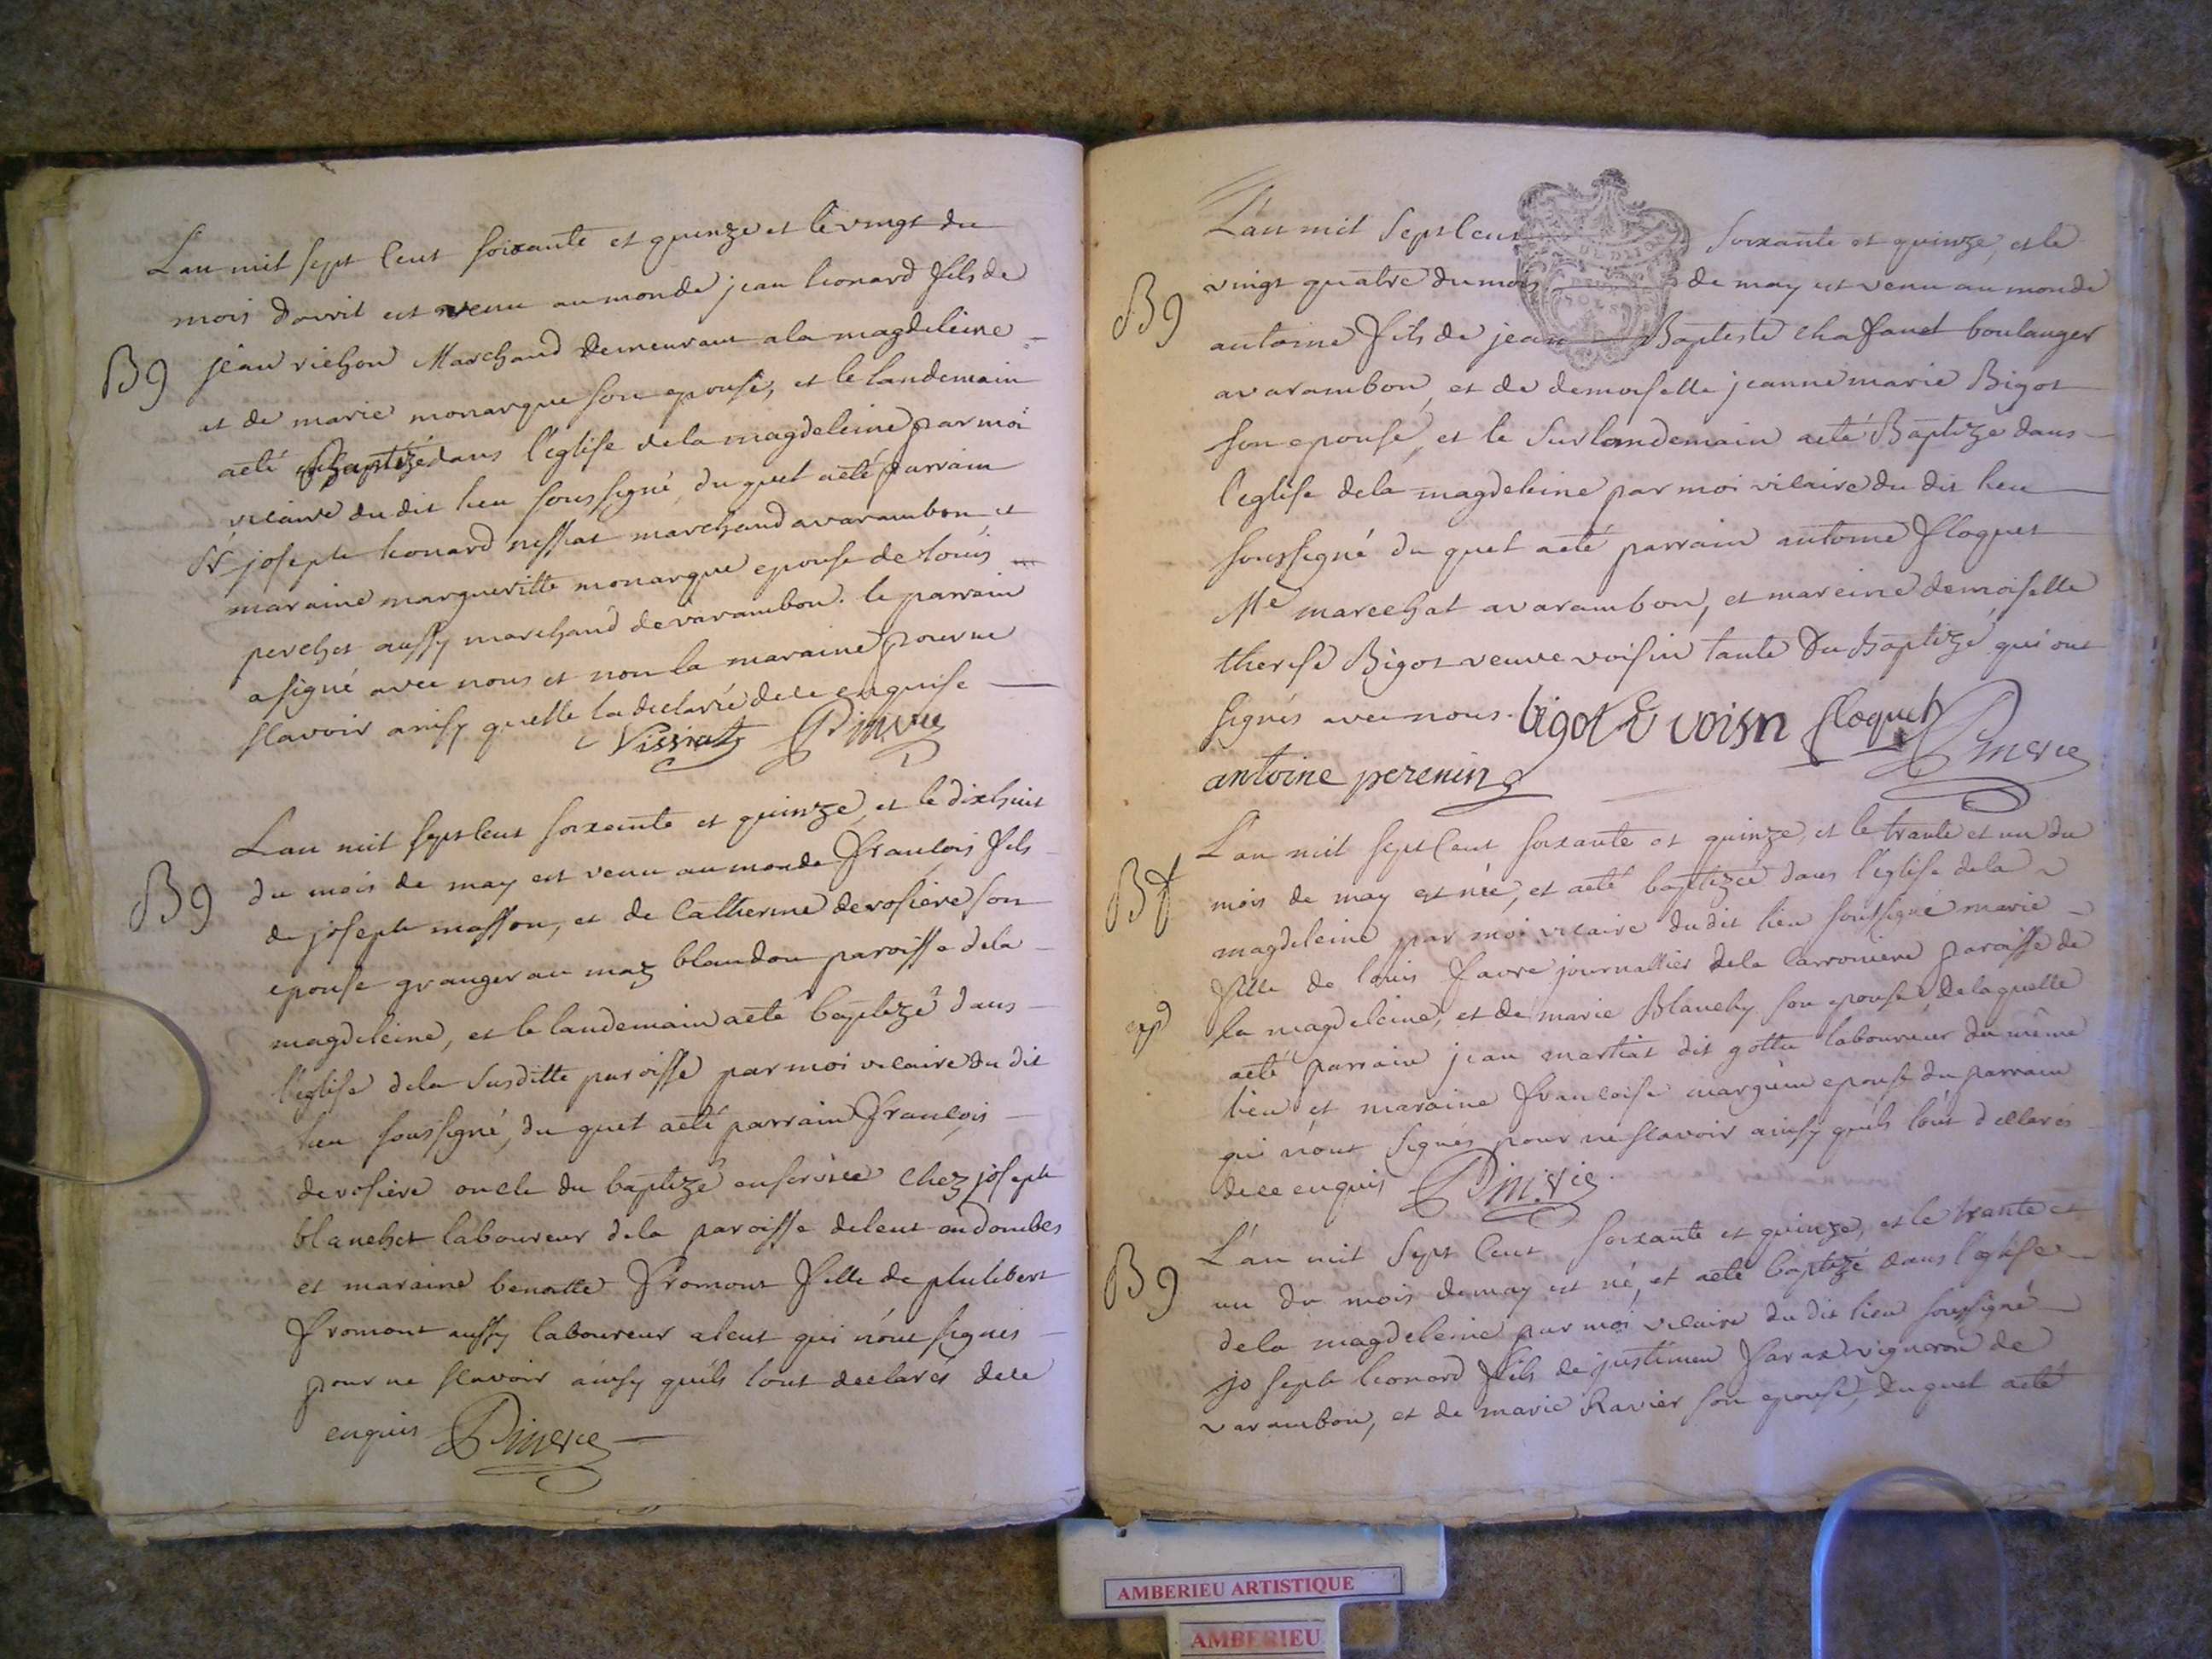 L'an mil sept cent soixante et quinze et le vingt du
mois d'avril est venu au monde jean leonard fils de
Bg jean richon Marchand demeurant a la magdeleine
et de marie monarque son epouse, et le landemain
a eté Baptizé dans l'eglise de la magdeleine par moi
vicaire du dit lieu soussigné, du quel a eté parrain
Sr joseph leonard nissiat marchand a varambon et
maraine margueritte monarque epouse de louis
perchet aussy marchand de varambon. le parrain
a signé avec nous et non la maraine pour ne
scavoir ainsy quelle la declaré de ce enquise
Nissiat
L'an mil sept cent soixante et quinze, et le dixhuit
Bg du mois de may est venu au monde François fils
de joseph masson, et de Catherine derosiere son
epouse granger au maz blandon paroisse de la
magdeleine, et le landemain a eté baptizé dans
l'eglise de la susditte paroisse par moi vicaire du dit
lieu soussigné, du quel a eté parrain François
derosiere oncle du baptizé en service Chez joseph
blanchet laboureur de la paroisse de lent en dombes
et maraine benoitte Fromont fille de philibert
fromont aussy laboureur a lent qui n'ont signés
pour ne scavoir ainsy quils lont declarés de ce
enquis
L'an mil sept cent soixante et quinze, et le
Bg vingt quatre du mois de may est venu au monde
antoine fils de jean Baptiste chafanel boulanger
a varambon, et de demoiselle jeanne marie Bigot
son epouse, et le surlandemain a eté Baptizé dans
l'eglise de la magdeleine par moi vicaire du dit lieu
soussigné du quel a eté parrain antoine floquet
Me marechal a varambon, et mareine demoiselle
therese Bigot veuve voisin tante du Baptizé qui ont
signés avec nous. bigot v voisn floquet
antoine perenin
L'an mil sept cent soixante et quinze, et le trante et un du
Bf mois de may est née, et a eté baptizée dans l'eglise de la
magdeleine par moi vicaire du dit lieu soussigné marie
fille de louis favre journallier de la Carroniere paroisse de
la magdeleine, et de marie Blanchy son epouse, de laquelle
a eté parrain jean martiat dit gottu laboureur du même
lieu et maraine Francoise marguin epouse du parrain
qui n'ont signés pour ne scavoir ainsy quils lont déclarés
de ce enquis
L'an mil sept cent soixante et quinze, et le trante et
Bg un du mois de may est né, et a eté baptizé dans l'eglise
de la magdeleine par moi vicaire du dit lieu soussigné
joseph leonard fils de justinien farax vigneron de
varambon, et de marie Ravier son epouse, duquel a eté
AMBERIEU ARTISTIQUE
AMBERIEU